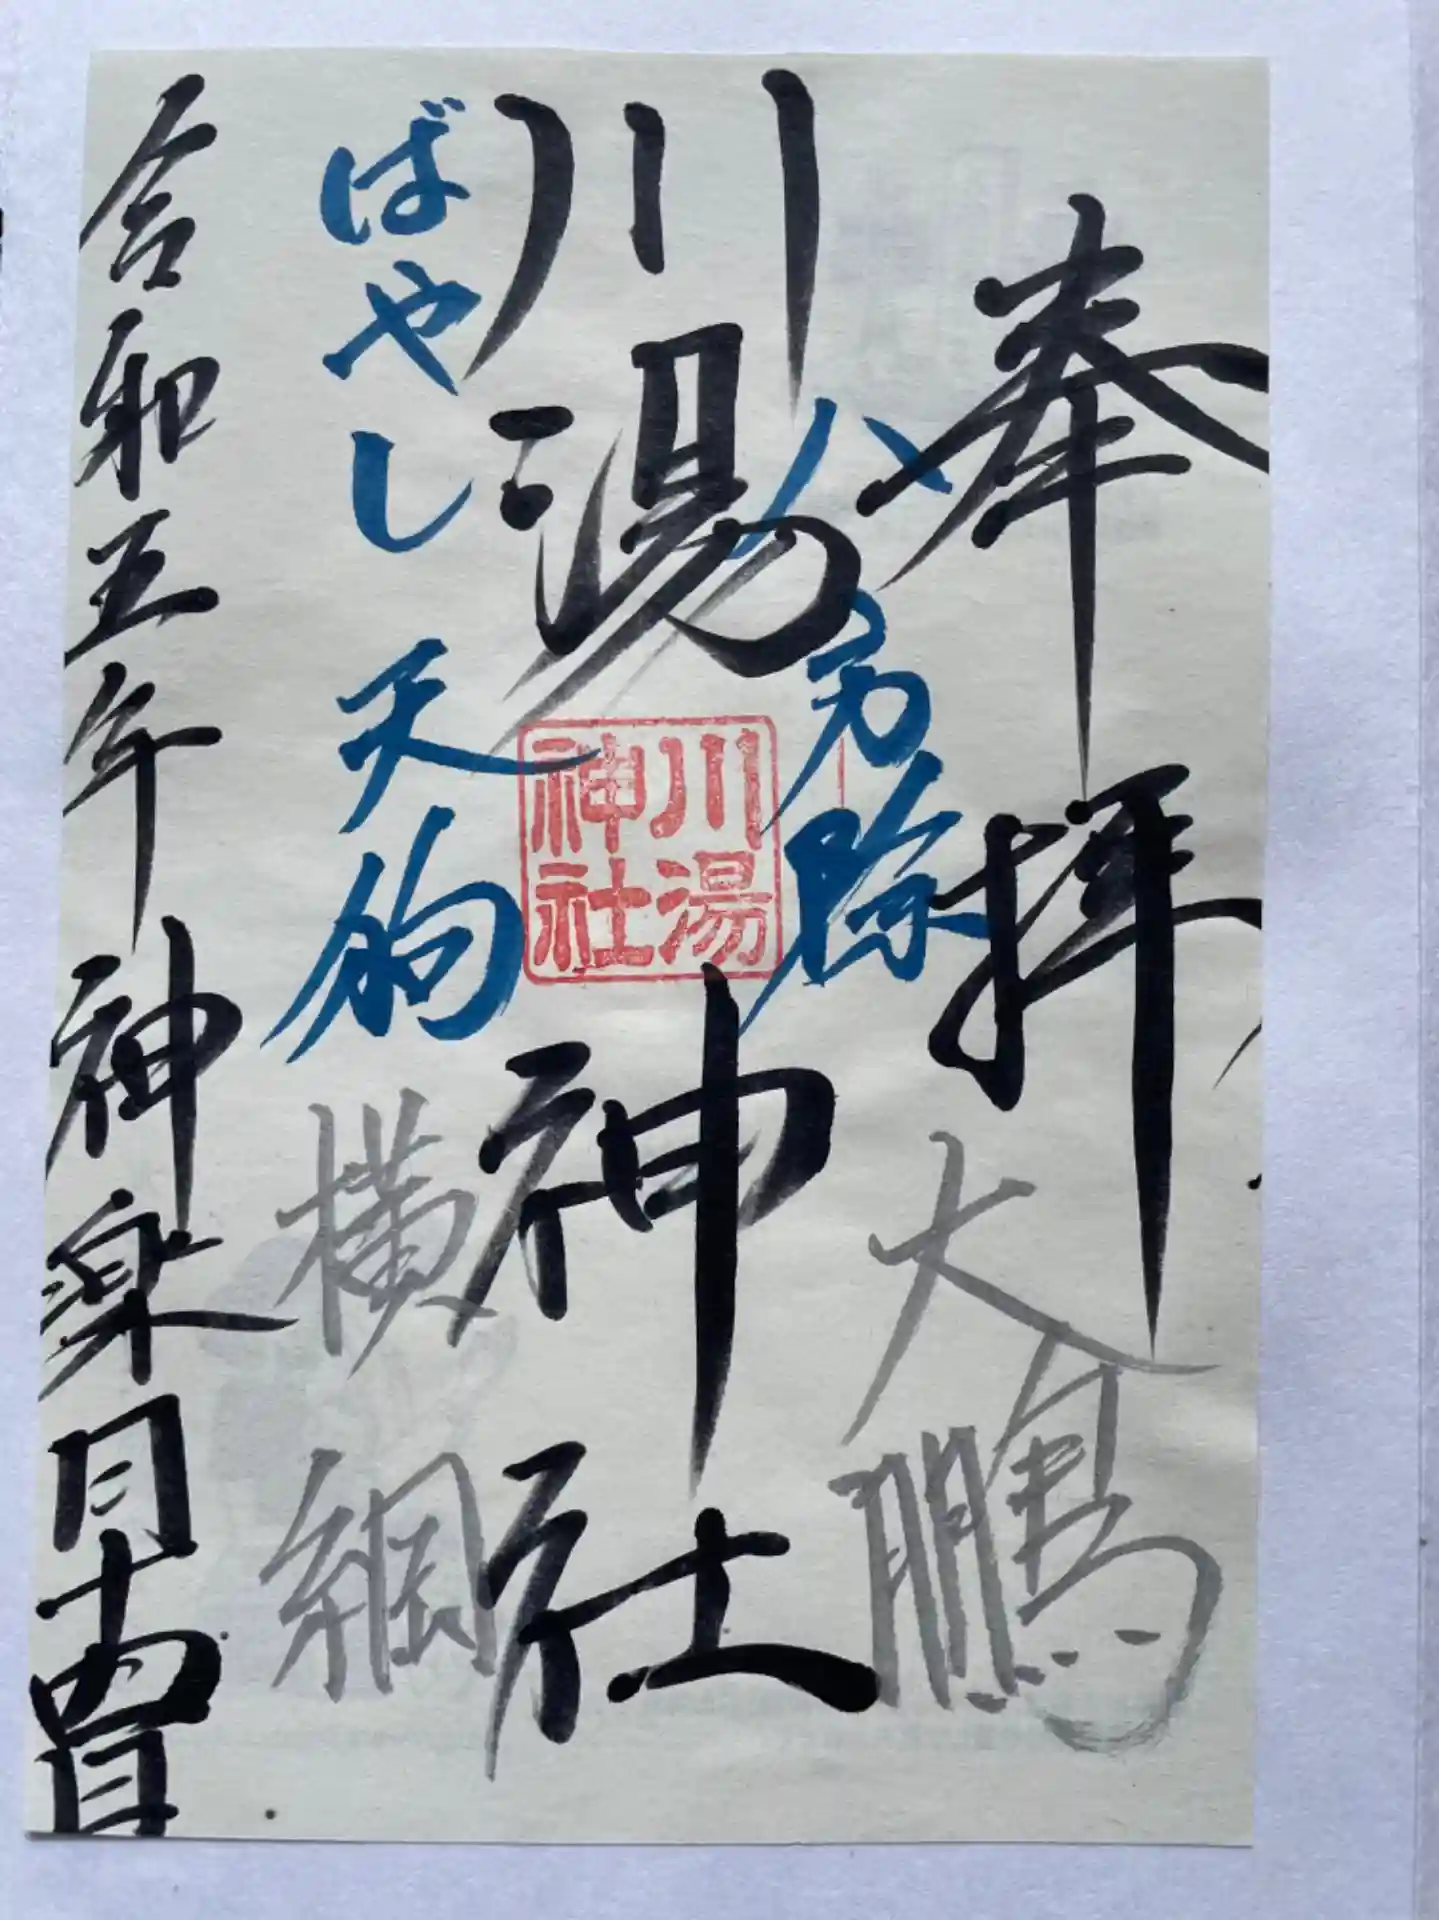 奉拝
八方除
大鵬
川湯神社
川湯
神社
ばやし 天狗
横綱
令和五年神楽月十四日